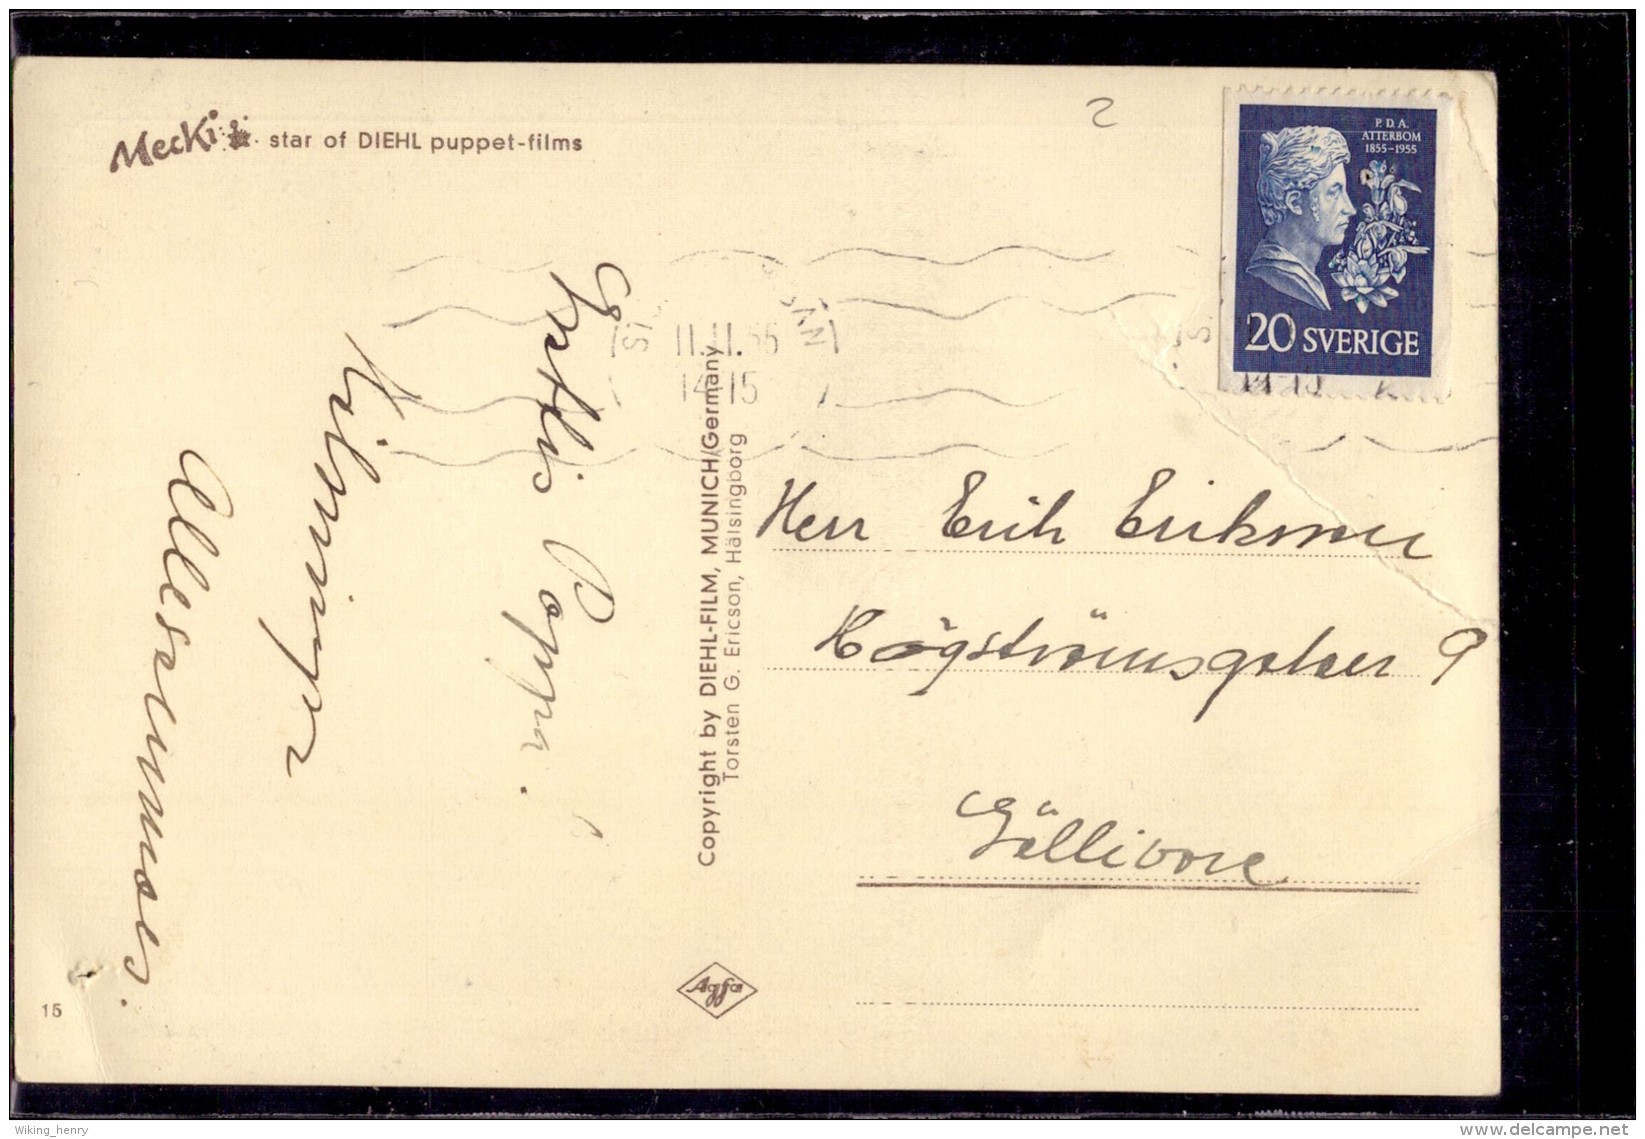 Mecki star of DIEHL puppet-films
2
P. D. A.
ATTERBOM
1855-1955
20 SVERIGE
11.11.55
14 15
Grattis Pappa.
Allesammas.
Copyright by DIEHL-FILM, MUNICH/Germany
Torsten G. Ericson, Hälsingborg
Herr Erik Eriksson
Högströmsgatan 9
Gällivare
Agfa
15
Wiking_henry
delcampe.net